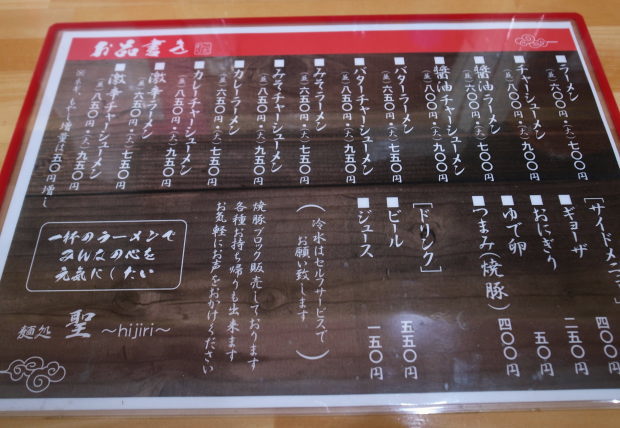 お品書き
■ラーメン
(並)六〇〇円・(大)七〇〇円
■チャーシューメン
(並)八〇〇円・(大)九〇〇円
■醤油ラーメン
(並)六〇〇円・(大)七〇〇円
■醤油チャーシューメン
(並)八〇〇円・(大)九〇〇円
■バターラーメン
(並)六五〇円・(大)七五〇円
■バターチャーシューメン
(並)八五〇円・(大)九五〇円
■みそラーメン
(並)六五〇円・(大)七五〇円
■みそチャーシューメン
(並)八五〇円・(大)九五〇円
■カレーラーメン
(並)六五〇円・(大)七五〇円
■カレーチャーシューメン
(並)八五〇円・(大)九五〇円
■激辛ラーメン
(並)六五〇円・(大)七五〇円
■激辛チャーシューメン
(並)八五〇円・(大)九五〇円
※ネギ、もやし増量は五〇円増し
[サイドメニュー]
■ギョーザ 四〇〇円
■おにぎり 二五〇円
■ゆで卵 五〇円
■つまみ(焼豚) 四〇〇円
[ドリンク]
■ビール 五五〇円
■ジュース 一五〇円
(冷水はセルフサービスで
お願い致します)
焼豚ブロック販売しております
各種お持ち帰りも出来ます
お気軽にお声をおかけください
一杯のラーメンで
みんなの心を
元気にしたい
麺処 聖 ～hijiri～